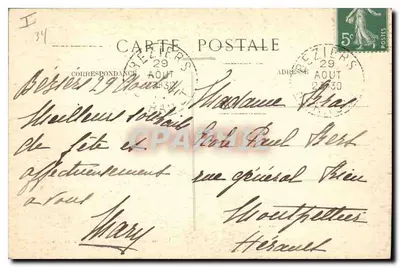 I
34
CARTE POSTALE
5c
POSTES
CORRESPONDANCE
ADRESSE
BEZIERS
29
AOUT
BEZIERS
29
AOUT
30
Béziers 29 Aout
Meilleurs souhaits
de fête et
affectueusement
a vous
Mary
Madame Bras
Ecole Paul Bert
rue général Rieu
Montpellier
Hérault